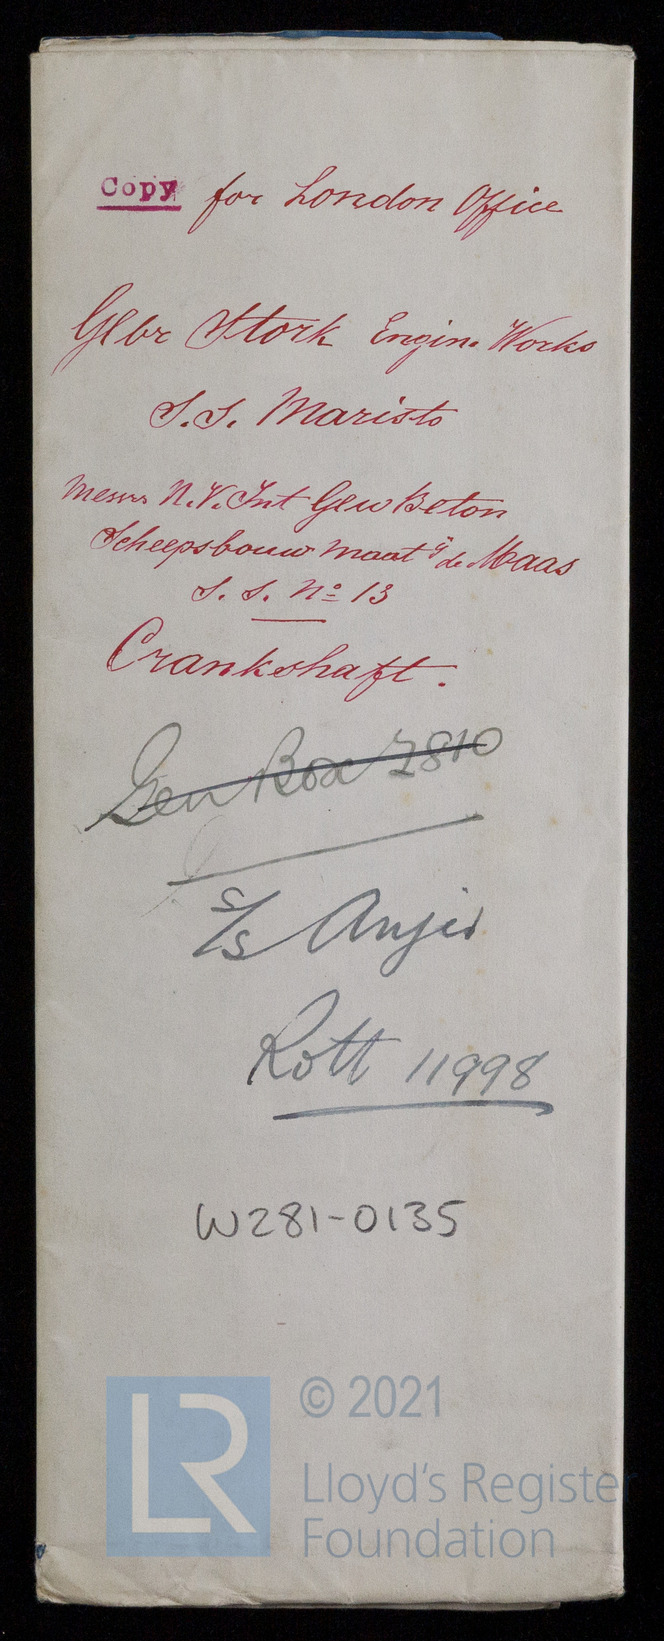 Copy for London Office
Gebr Stork Engin. Works
S.S. Maristo
Messrs N.V. Int Gew Beton
Scheepsbouw Maatÿ de Maas
S.S. No 13
Crankshaft.
Gen Box 2810
S/S Anjer
Rott 11998
W281-0135
LR
© 2021
Lloyd's Register
Foundation